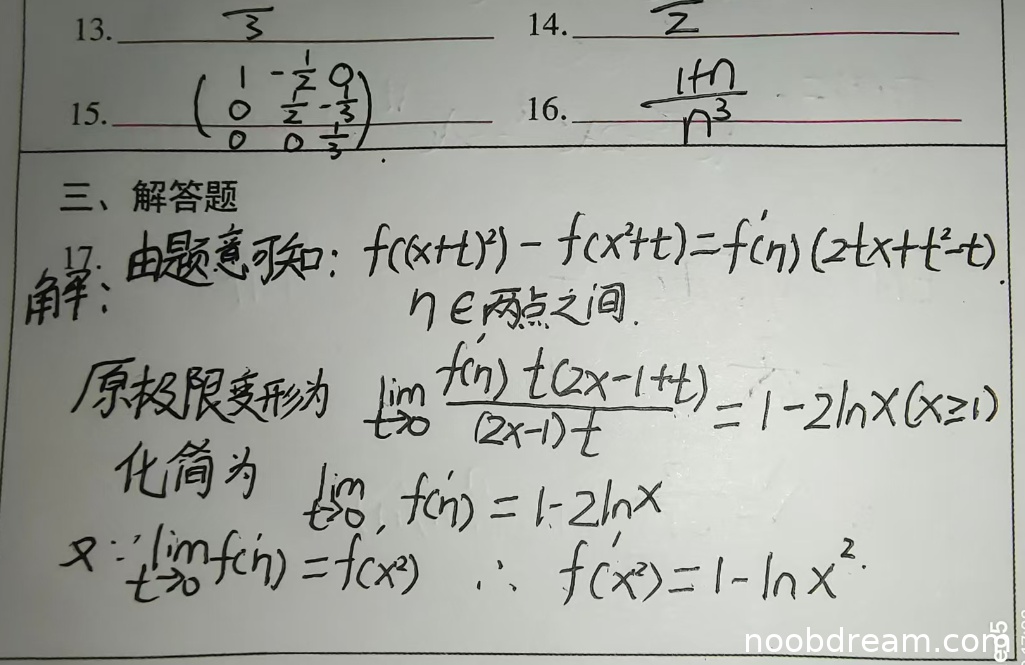 13. 3 14. 2
15. ( 1 -1/2 0
0 1/2 -1/3
0 0 1/3 ) .
16. (1+n)/n³
三、解答题
17. 由题意可知: f((x+t)²) - f(x²+t) = f'(η)(2tx+t²-t).
解: η∈两点之间.
原极限变形为 lim t→0 f'(η) t(2x-1+t) / (2x-1)t = 1-2lnx (x≥1)
化简为 lim t→0 f'(η) = 1-2lnx
又∵ lim t→0 f'(η) = f'(x²) ∴ f'(x²) = 1-lnx².
noobdream.com